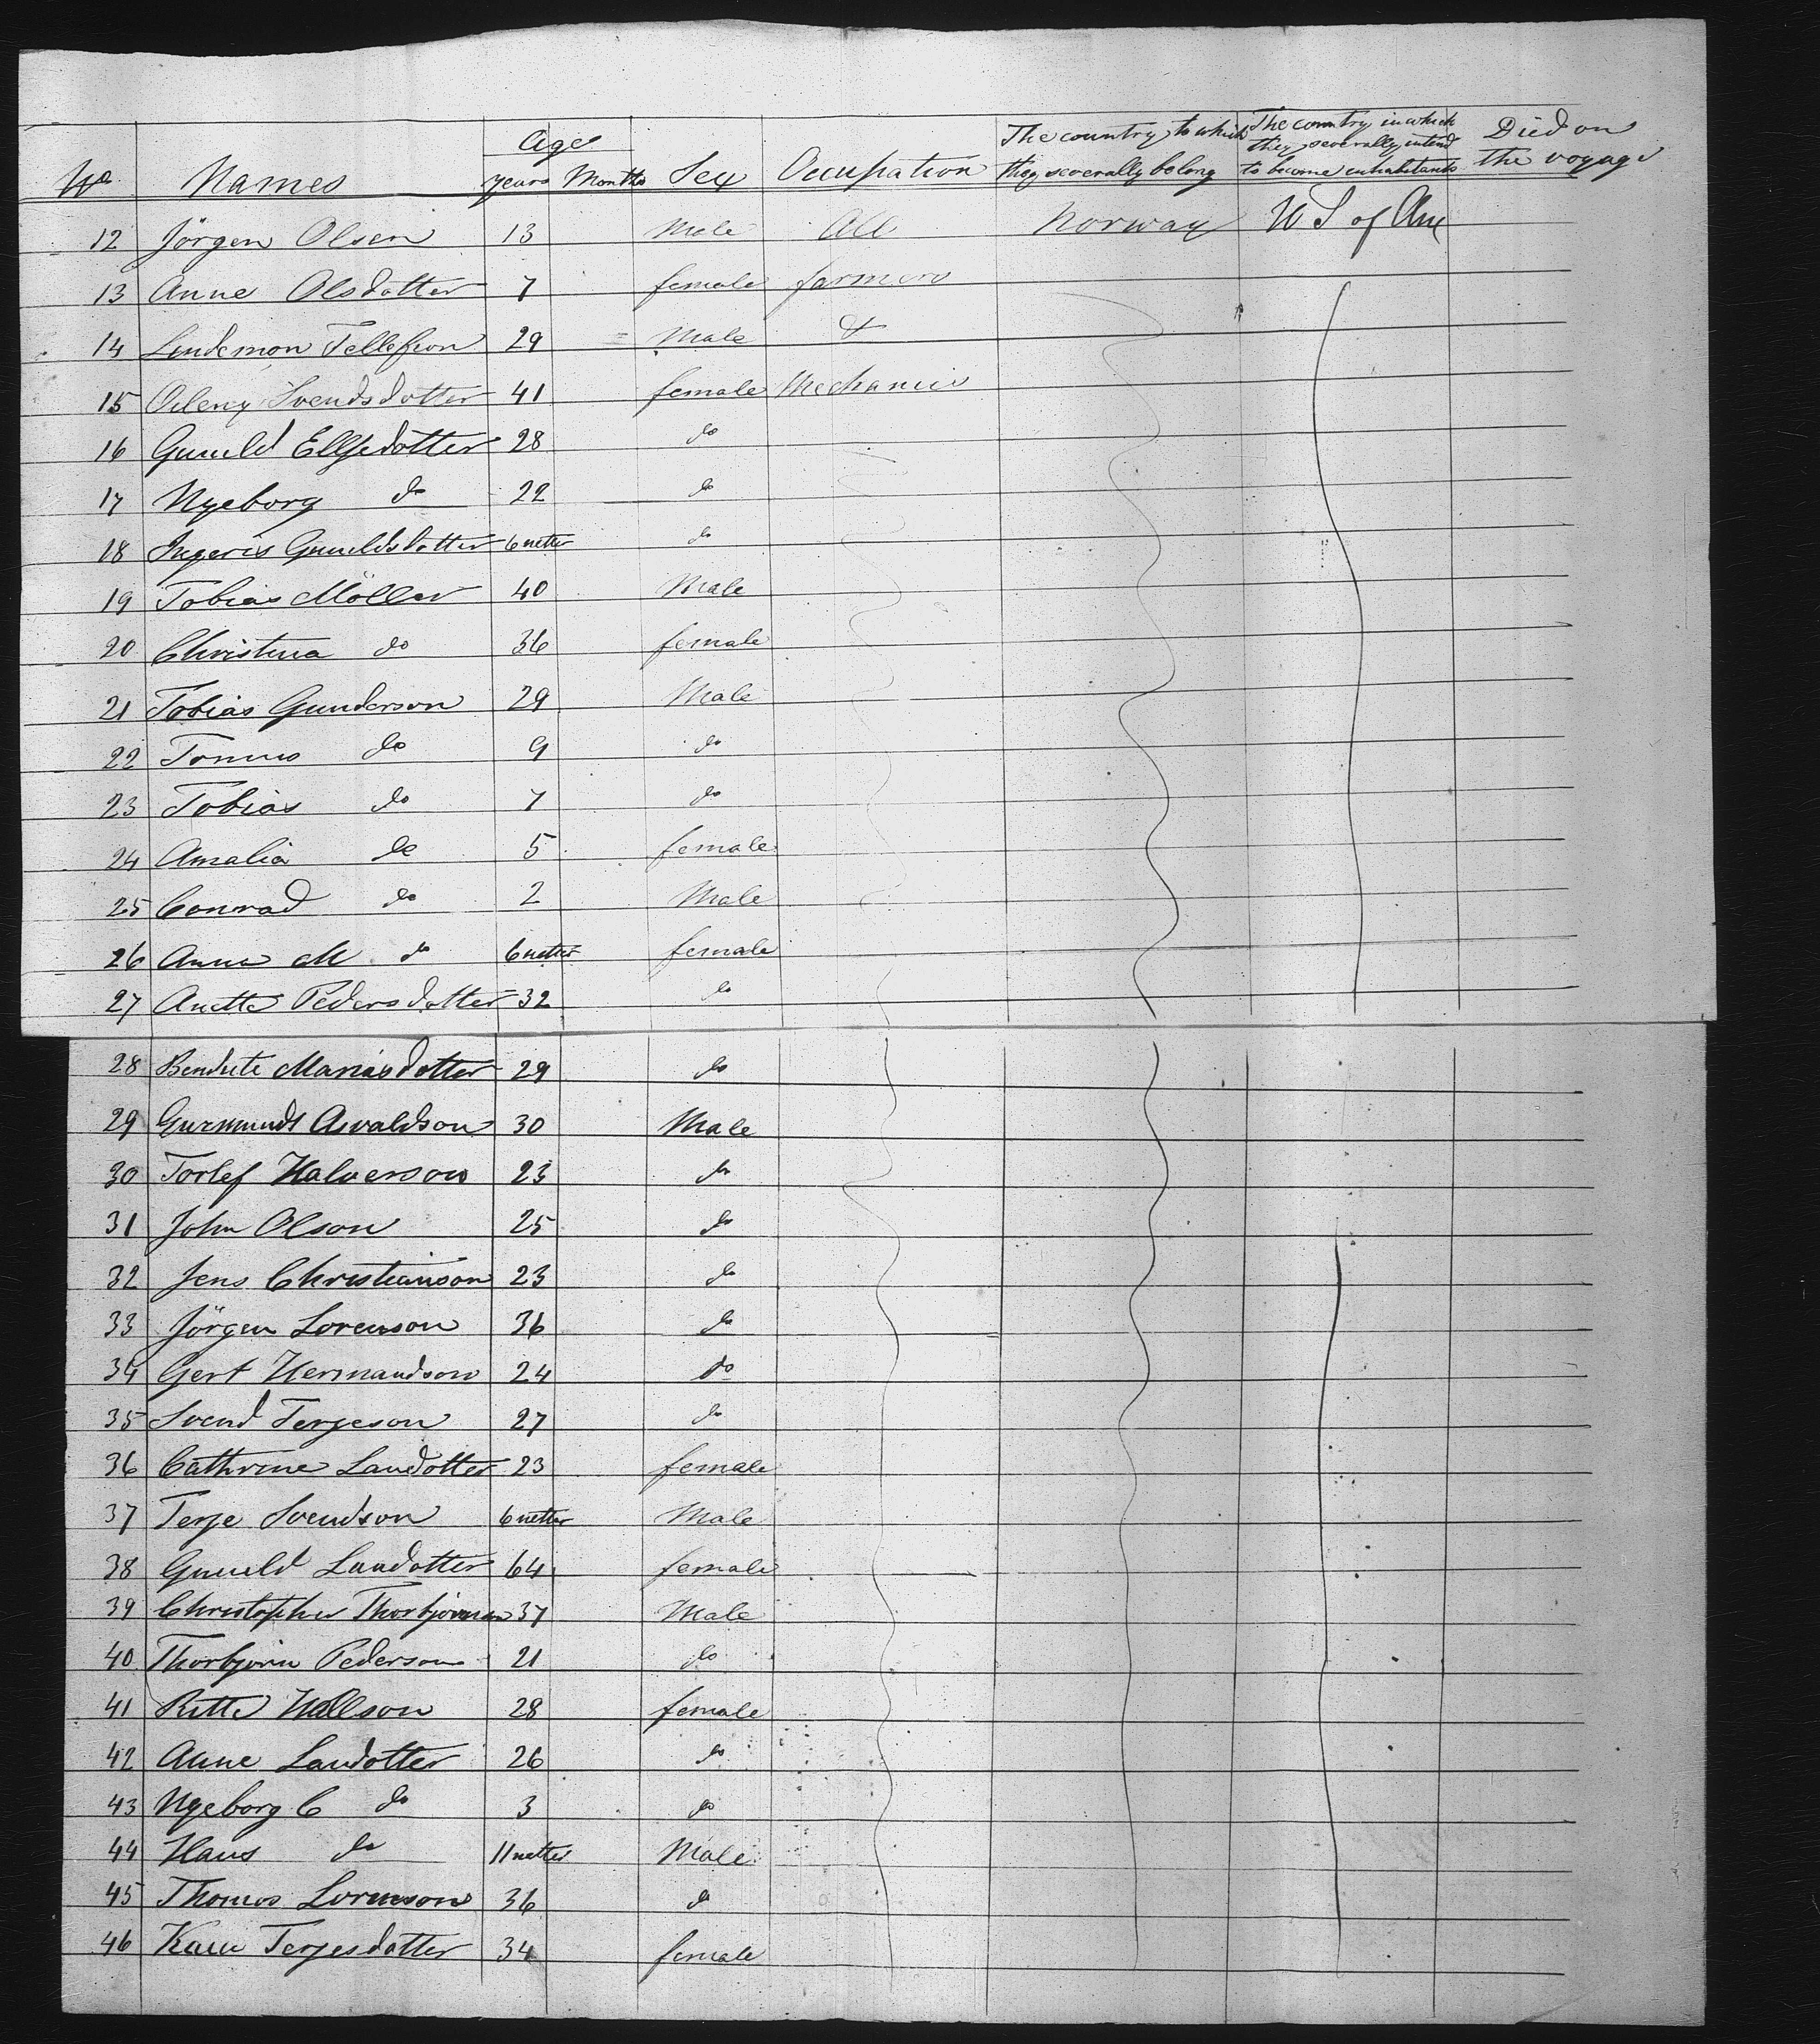 No Names Age years Months Sex Occupation The country to which they severally belong The country in which they severally intend to become inhabitants Died on the voyage
12 Jörgen Olsen 13 Male All Norway U S of Am
13 Anne Olsdotter 7 female farmers
14 29 Male &
15 Svendsdotter 41 female Mechanics
16 Gunuld 28 do
17 Ngeborg do 22 do
18 Ingeris Gunuldsdotter 6 do
19 Tobias Möller 40 Male
20 Christina do 36 female
21 Tobias Gunderson 29 Male
22 do 9 do
23 Tobias do 7 do
24 Amalia do 5 female
25 Conrad do 2 Male
26 Anna M do 6 female
27 Anette Pedersdotter 32 do
28 29 do
29 30 Male
30 Torlef Halverson 23 do
31 John Olson 25 do
32 Jens Christianson 23 do
33 Jörgen Lorenson 36 do
34 Gert Hermandson 24 do
35 Svend Terjeson 27 do
36 Cathrine 23 female
37 Terje Svendson 6 Male
38 Gunuld 64 female
39 Christopher 37 Male
40 Thorbjorn Pederson 21 do
41 28 female
42 Anne 26 do
43 Ngeborg C do 3 do
44 Hans do 11 Male
45 Thomas Lorenson 36 do
46 Terjesdatter 34 female